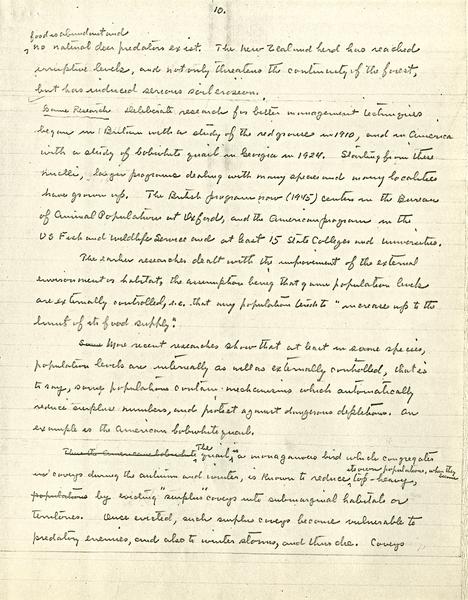 10.
food is abundant and
no natural deer predators exist. The New Zealand herd has reached
irruptive levels, and not only threatens the continuity of the forest,
but has induced serious soil erosion.
Game Research Deliberate research for better management techniques
began in Britain with a study of the red grouse in 1910, and in America
with a study of bobwhite quail in Georgia in 1924. Starting from these
nuclei, larger programs dealing with many species and many localities
have grown up. The British program now (1945) centers in the Bureau
of Animal Populations at Oxford, and the American program in the
US Fish and Wildlife Service and at least 15 State Colleges and universities.
The earlier researches dealt with the improvement of the external
environment or habitat, the assumption being that game population levels
are externally controlled, i.e. that any population tends to "increase up to the
limit of its food supply".
Some More recent researches show that at least in some species,
population levels are internally as well as externally controlled, that is
to say, some populations contain mechanisms which automatically
reduce surplus numbers, and protect against dangerous depletions. An
example is the American bobwhite quail.
Thus the American bobwhite The quail, a monogamous bird which congregates
in coveys during the autumn and winter, is known to reduce its own populations, when they become top-heavy,
populations by evicting "surplus" coveys into submarginal habitats or
territories. Once evicted, such surplus coveys become vulnerable to
predatory enemies, and also to winter storms, and thus die. Coveys